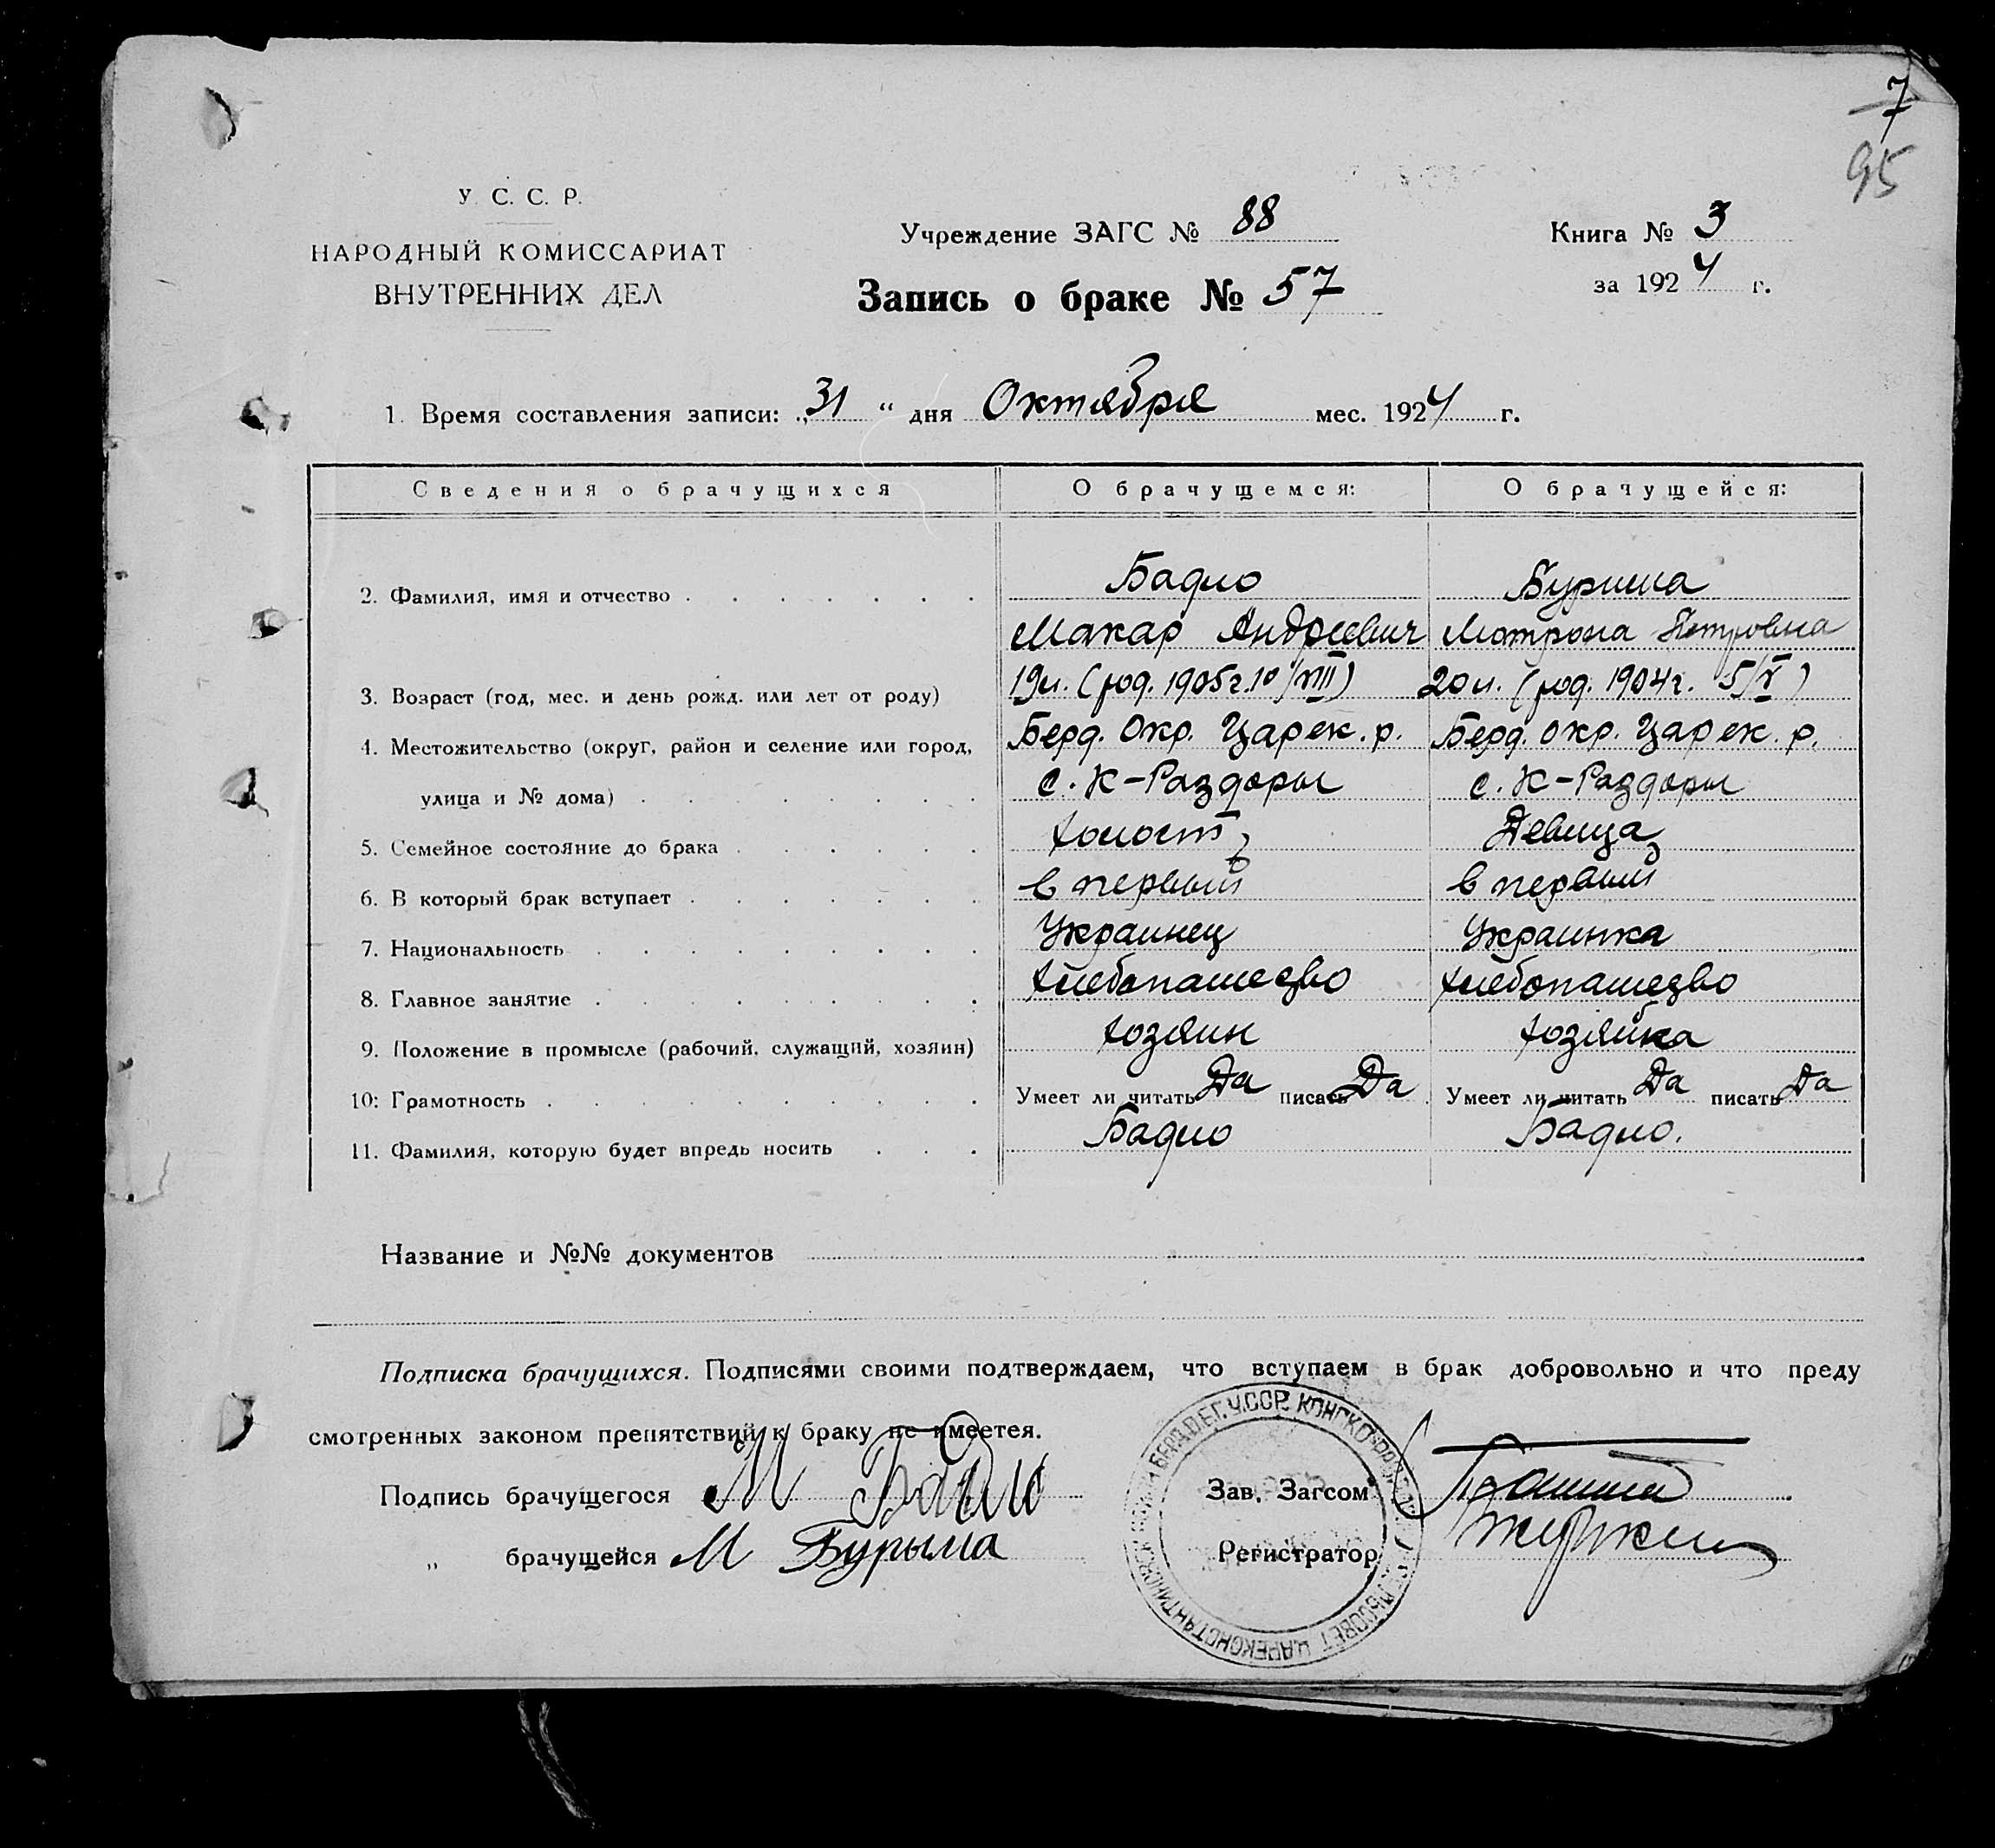 7
95
У. С. С. Р.
НАРОДНЫЙ КОМИССАРИАТ
ВНУТРЕННИХ ДЕЛ
Учреждение ЗАГС № 88
Запись о браке № 57
Книга № 3
за 1924 г.
1. Время составления записи: „31“ дня Октября мес. 1924 г.
Сведения о брачущихся О брачущемся: О брачущейся:
2. Фамилия, имя и отчество Бадло Бурима
Макар Андреевич Мотрона Петровна
3. Возраст (год, мес. и день рожд. или лет от роду) 19 л. (род. 1905 г. 10/VIII) 20 л. (род. 1904 г. 5/V)
4. Местожительство (округ, район и селение или город, Берд. Окр. Царек. р. Берд. Окр. Царек. р.
улица и № дома) с. К-Раздоры с. К-Раздоры
5. Семейное состояние до брака Холост Девица
6. В который брак вступает в первый в первый
7. Национальность Украинец Украинка
8. Главное занятие Хлебопашество Хлебопашество
9. Положение в промысле (рабочий, служащий, хозяин) Хозяин Хозяйка
10: Грамотность Умеет ли читать Да писать Да Умеет ли читать Да писать Да
11. Фамилия, которую будет впредь носить Бадло Бадло.
Название и №№ документов
Подписка брачущихся. Подписями своими подтверждаем, что вступаем в брак добровольно и что преду
смотренных законом препятствий к браку не имеется.
Подпись брачущегося М Бадло Зав. Загсом
„ брачущейся М Бурыма Регистратор
У.ССР. КОНСКО-РАЗД
СЕЛЬСОВЕТ ЦАРЕКОНСТАНТИНОВСК